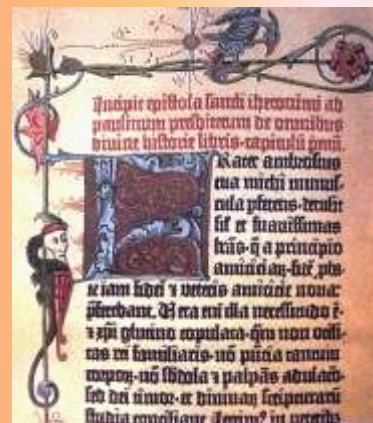 Incipit epistola sancti iheronimi ad
paulinum presbiterum de omnibus
divine historie libris·capitulū pmū.
Frater ambrosius
tua michi munus-
cula pferens·detulit
sil' et suavissimas
lrās·q̄ a principio
amiciciaȝ·fidē pba-
te iam fidei ⁊ veteris amicicie nova:
pferebant. Vera eni illa necessitudo ē·
⁊ xpi glutino copulata·qm̄ non utili-
tas rei familiaris·nō pn̄cia tantum
corpoȝ·nō sbdola ⁊ palpās adulacō·
sed dei timor·et divinaȝ scripturaȝ
studia conciliant. Legim⁹ in veteribȝ